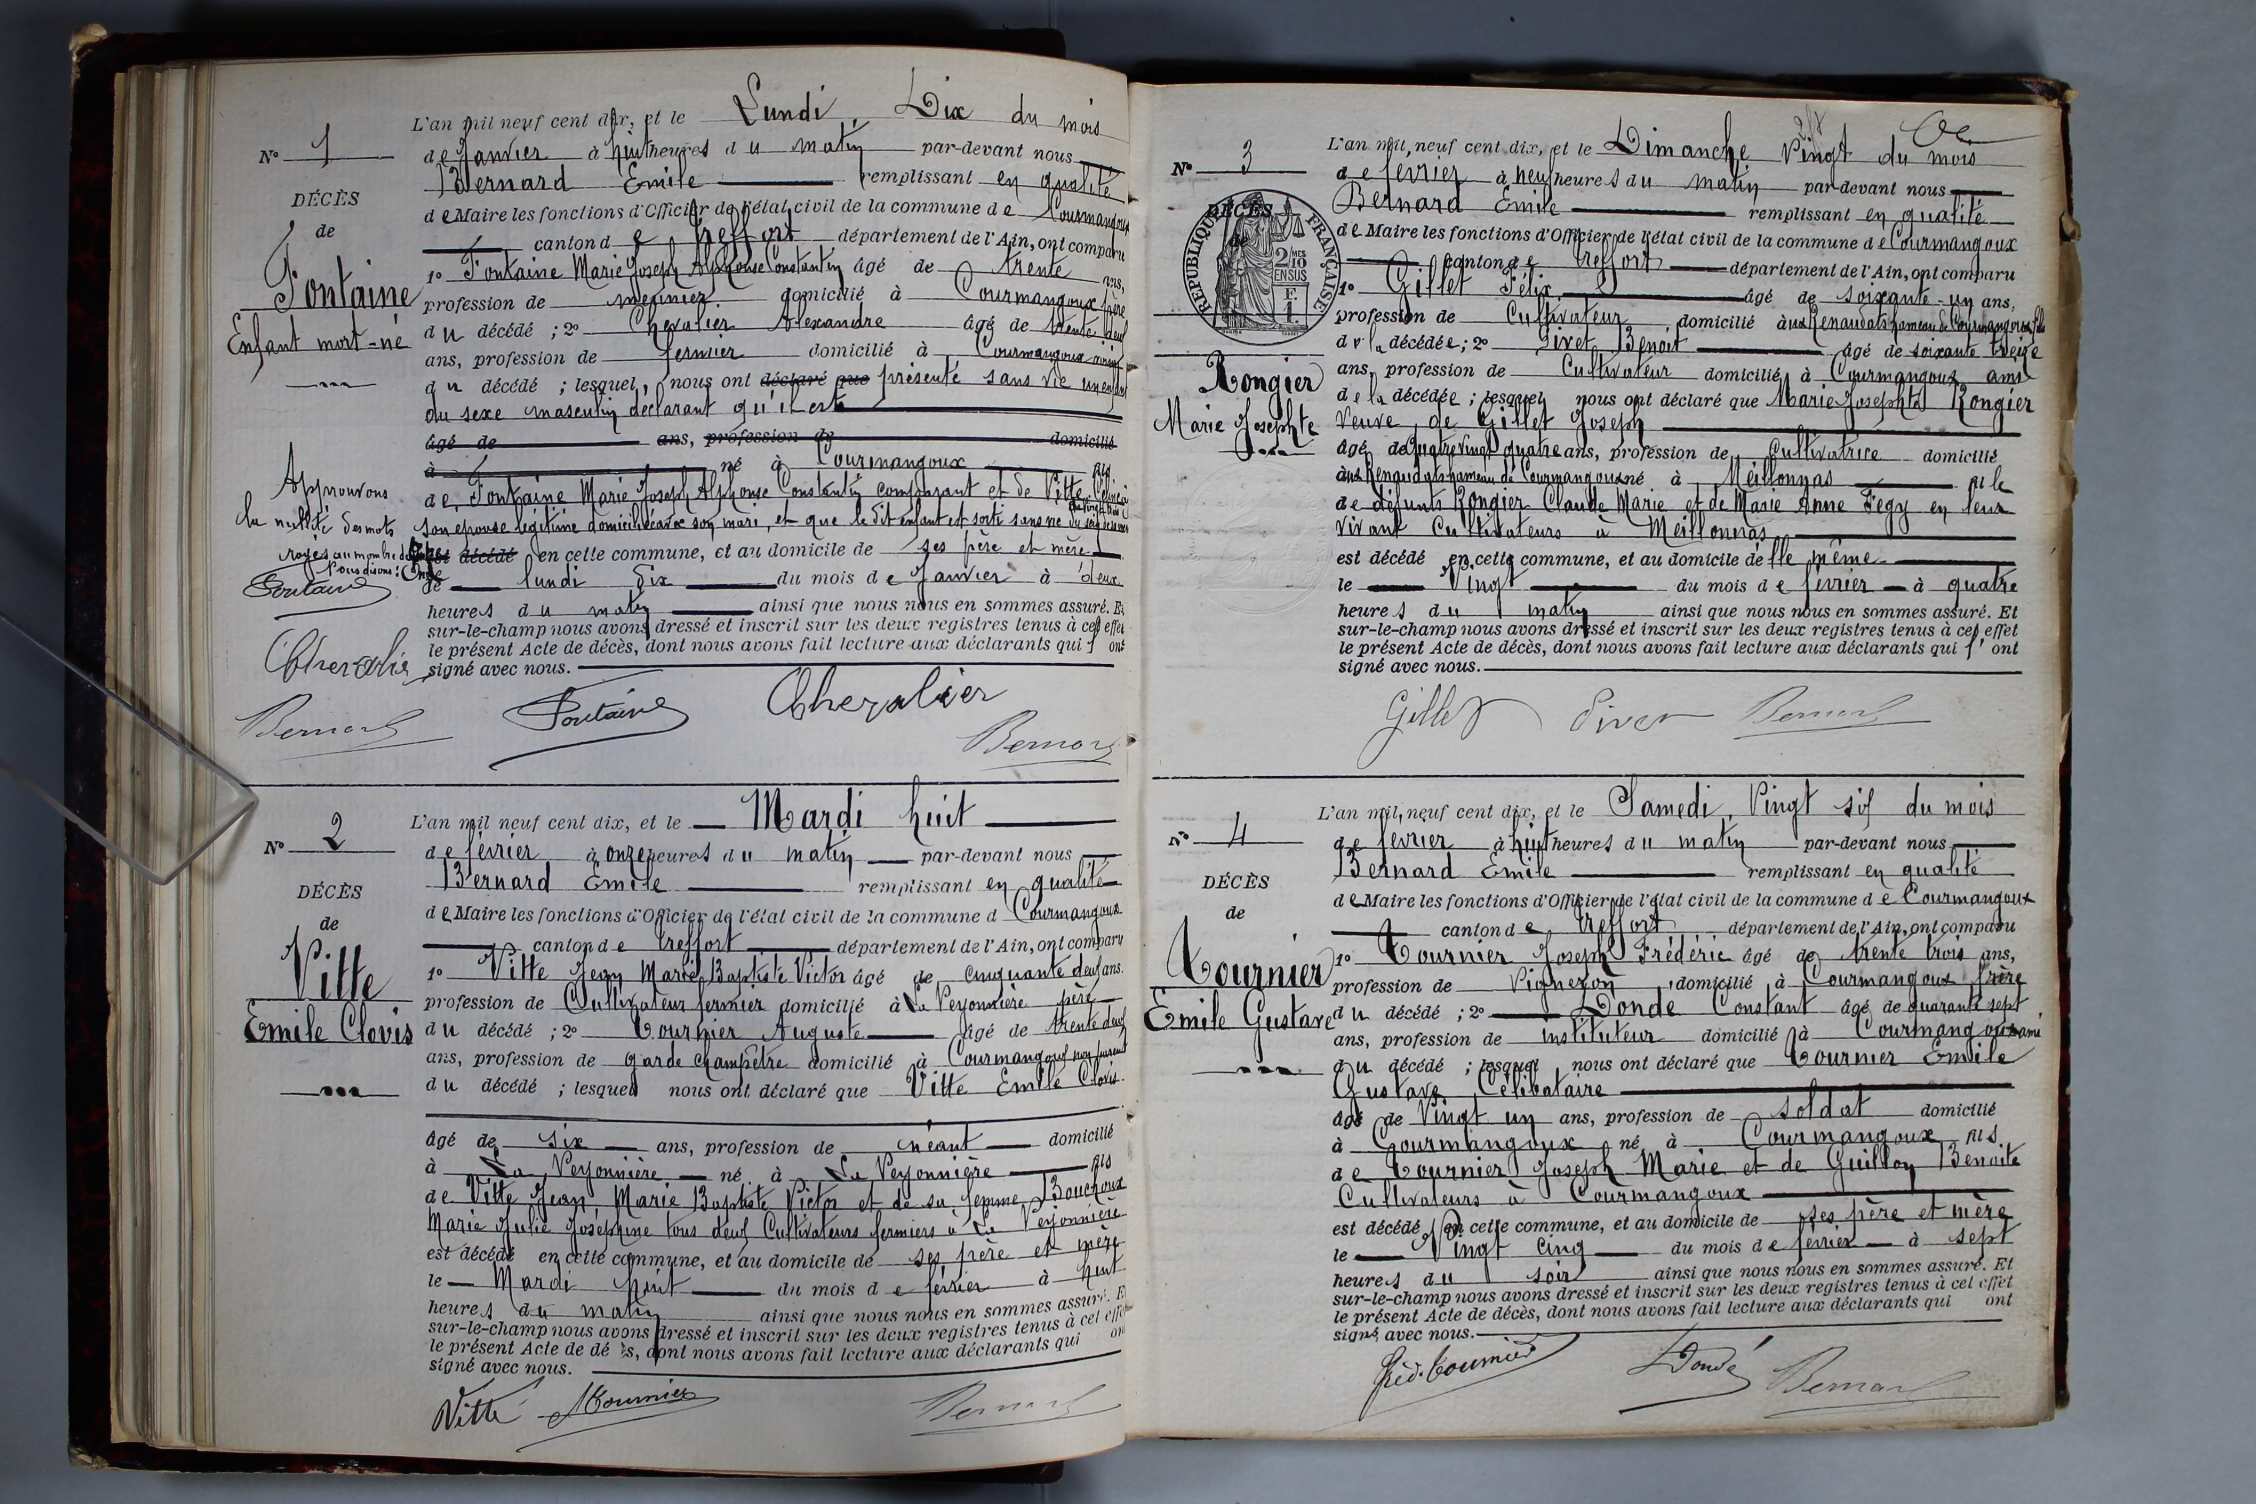 N° 1
DÉCÈS
de
Fontaine
Enfant mort-né
Approuvons
la nullité des mots
rayés au nombre de
Nous disons : Onze
Fontaine
Chevalier
Bernard
L'an mil neuf cent dix, et le Lundi Dix du mois
de Janvier à huit heures du matin par-devant nous
Bernard Emile remplissant en qualité
de Maire les fonctions d'Officier de l'état civil de la commune de Courmangoux
canton de Treffort département de l'Ain, ont comparu
1° Fontaine Marie Joseph Alphonse Constantin âgé de trente ans,
profession de meunier domicilié à Courmangoux père
du décédé ; 2° Chevalier Alexandre âgé de trente deux
ans, profession de fermier domicilié à Courmangoux
du décédé ; lesquels nous ont déclaré que présenté sans vie un enfant
du sexe masculin déclarant qu'il est
âgé de ans, profession de domicilié
à né à Courmangoux fils
de Fontaine Marie Joseph Alphonse Constantin comparant et de Vitte
son épouse légitime domiciliée avec son mari, et que le dit enfant est sorti sans vie du sein de sa mère
est décédé en cette commune, et au domicile de ses père et mère
le lundi dix du mois de Janvier à deux
heures du matin ainsi que nous nous en sommes assuré. Et
sur-le-champ nous avons dressé et inscrit sur les deux registres tenus à cet effet
le présent Acte de décès, dont nous avons fait lecture aux déclarants qui ont
signé avec nous.
Fontaine Chevalier Bernard
N° 2
DÉCÈS
de
Vitte
Emile Clovis
L'an mil neuf cent dix, et le Mardi huit
de février à onze heures du matin par-devant nous
Bernard Emile remplissant en qualité
de Maire les fonctions d'Officier de l'état civil de la commune d Courmangoux
canton de Treffort département de l'Ain, ont comparu
1° Vitte Jean Marie Baptiste Victor âgé de cinquante deux ans.
profession de Cultivateur fermier domicilié à La Veyonnière père
du décédé ; 2° Tournier Auguste âgé de trente deux
ans, profession de garde champêtre domicilié à Courmangoux non parent
du décédé ; lesquels nous ont déclaré que Vitte Emile Clovis
âgé de six ans, profession de néant domicilié
à La Veyonnière né à La Veyonnière fils
de Vitte Jean Marie Baptiste Victor et de sa femme Bouchoux
Marie Julie Joséphine tous deux Cultivateurs fermiers à La Veyonnière
est décédé en cette commune, et au domicile de ses père et mère
le Mardi huit du mois de février à huit
heures du matin ainsi que nous nous en sommes assuré. Et
sur-le-champ nous avons dressé et inscrit sur les deux registres tenus à cet effet
le présent Acte de décès, dont nous avons fait lecture aux déclarants qui ont
signé avec nous.
Vitte Tournier Bernard
N° 3
DÉCÈS
de
RÉPUBLIQUE FRANÇAISE
2/10 MES
EN SUS
F.
1.
Rongier
Marie Josephte
L'an mil neuf cent dix, et le Dimanche Vingt du mois
de février à neuf heures du matin par-devant nous
Bernard Emile remplissant en qualité
de Maire les fonctions d'Officier de l'état civil de la commune de Courmangoux
canton de Treffort département de l'Ain, ont comparu
1° Gillet Félix âgé de soixante-un ans,
profession de Cultivateur domicilié aux Renaudats hameau de Courmangoux fils
de la décédée ; 2° Sivet Benoît âgé de soixante treize
ans, profession de Cultivateur domicilié à Courmangoux ami
de la décédée ; lesquels nous ont déclaré que Marie Josephte Rongier
Veuve de Gillet Joseph
âgé de quatre vingt quatre ans, profession de Cultivatrice domicilié
aux Renaudats hameau de Courmangoux né à Meillonnas fille
de défunts Rongier Claude Marie et de Marie Anne Fegy en leur
vivant Cultivateurs à Meillonnas
est décédé en cette commune, et au domicile de elle même
le Vingt du mois de février à quatre
heures du matin ainsi que nous nous en sommes assuré. Et
sur-le-champ nous avons dressé et inscrit sur les deux registres tenus à cet effet
le présent Acte de décès, dont nous avons fait lecture aux déclarants qui ont
signé avec nous.
Gillet Sivet Bernard
N° 4
DÉCÈS
de
Tournier
Emile Gustave
L'an mil neuf cent dix, et le Samedi Vingt six du mois
de février à huit heures du matin par-devant nous
Bernard Emile remplissant en qualité
de Maire les fonctions d'Officier de l'état civil de la commune de Courmangoux
canton de Treffort département de l'Ain, ont comparu
1° Tournier Joseph Frédéric âgé de trente trois ans,
profession de Vigneron domicilié à Courmangoux frère
du décédé ; 2° Dondé Constant âgé de quarante sept
ans, profession de instituteur domicilié à Courmangoux ami
du décédé ; lesquels nous ont déclaré que Tournier Emile
Gustave Célibataire
âgé de Vingt un ans, profession de soldat domicilié
à Courmangoux né à Courmangoux fils
de Tournier Joseph Marie et de Guillon Benoite
Cultivateurs à Courmangoux
est décédé en cette commune, et au domicile de ses père et mère
le Vingt cinq du mois de février à sept
heures du soir ainsi que nous nous en sommes assuré. Et
sur-le-champ nous avons dressé et inscrit sur les deux registres tenus à cet effet
le présent Acte de décès, dont nous avons fait lecture aux déclarants qui ont
signé avec nous.
Fréd. Tournier Dondé Bernard